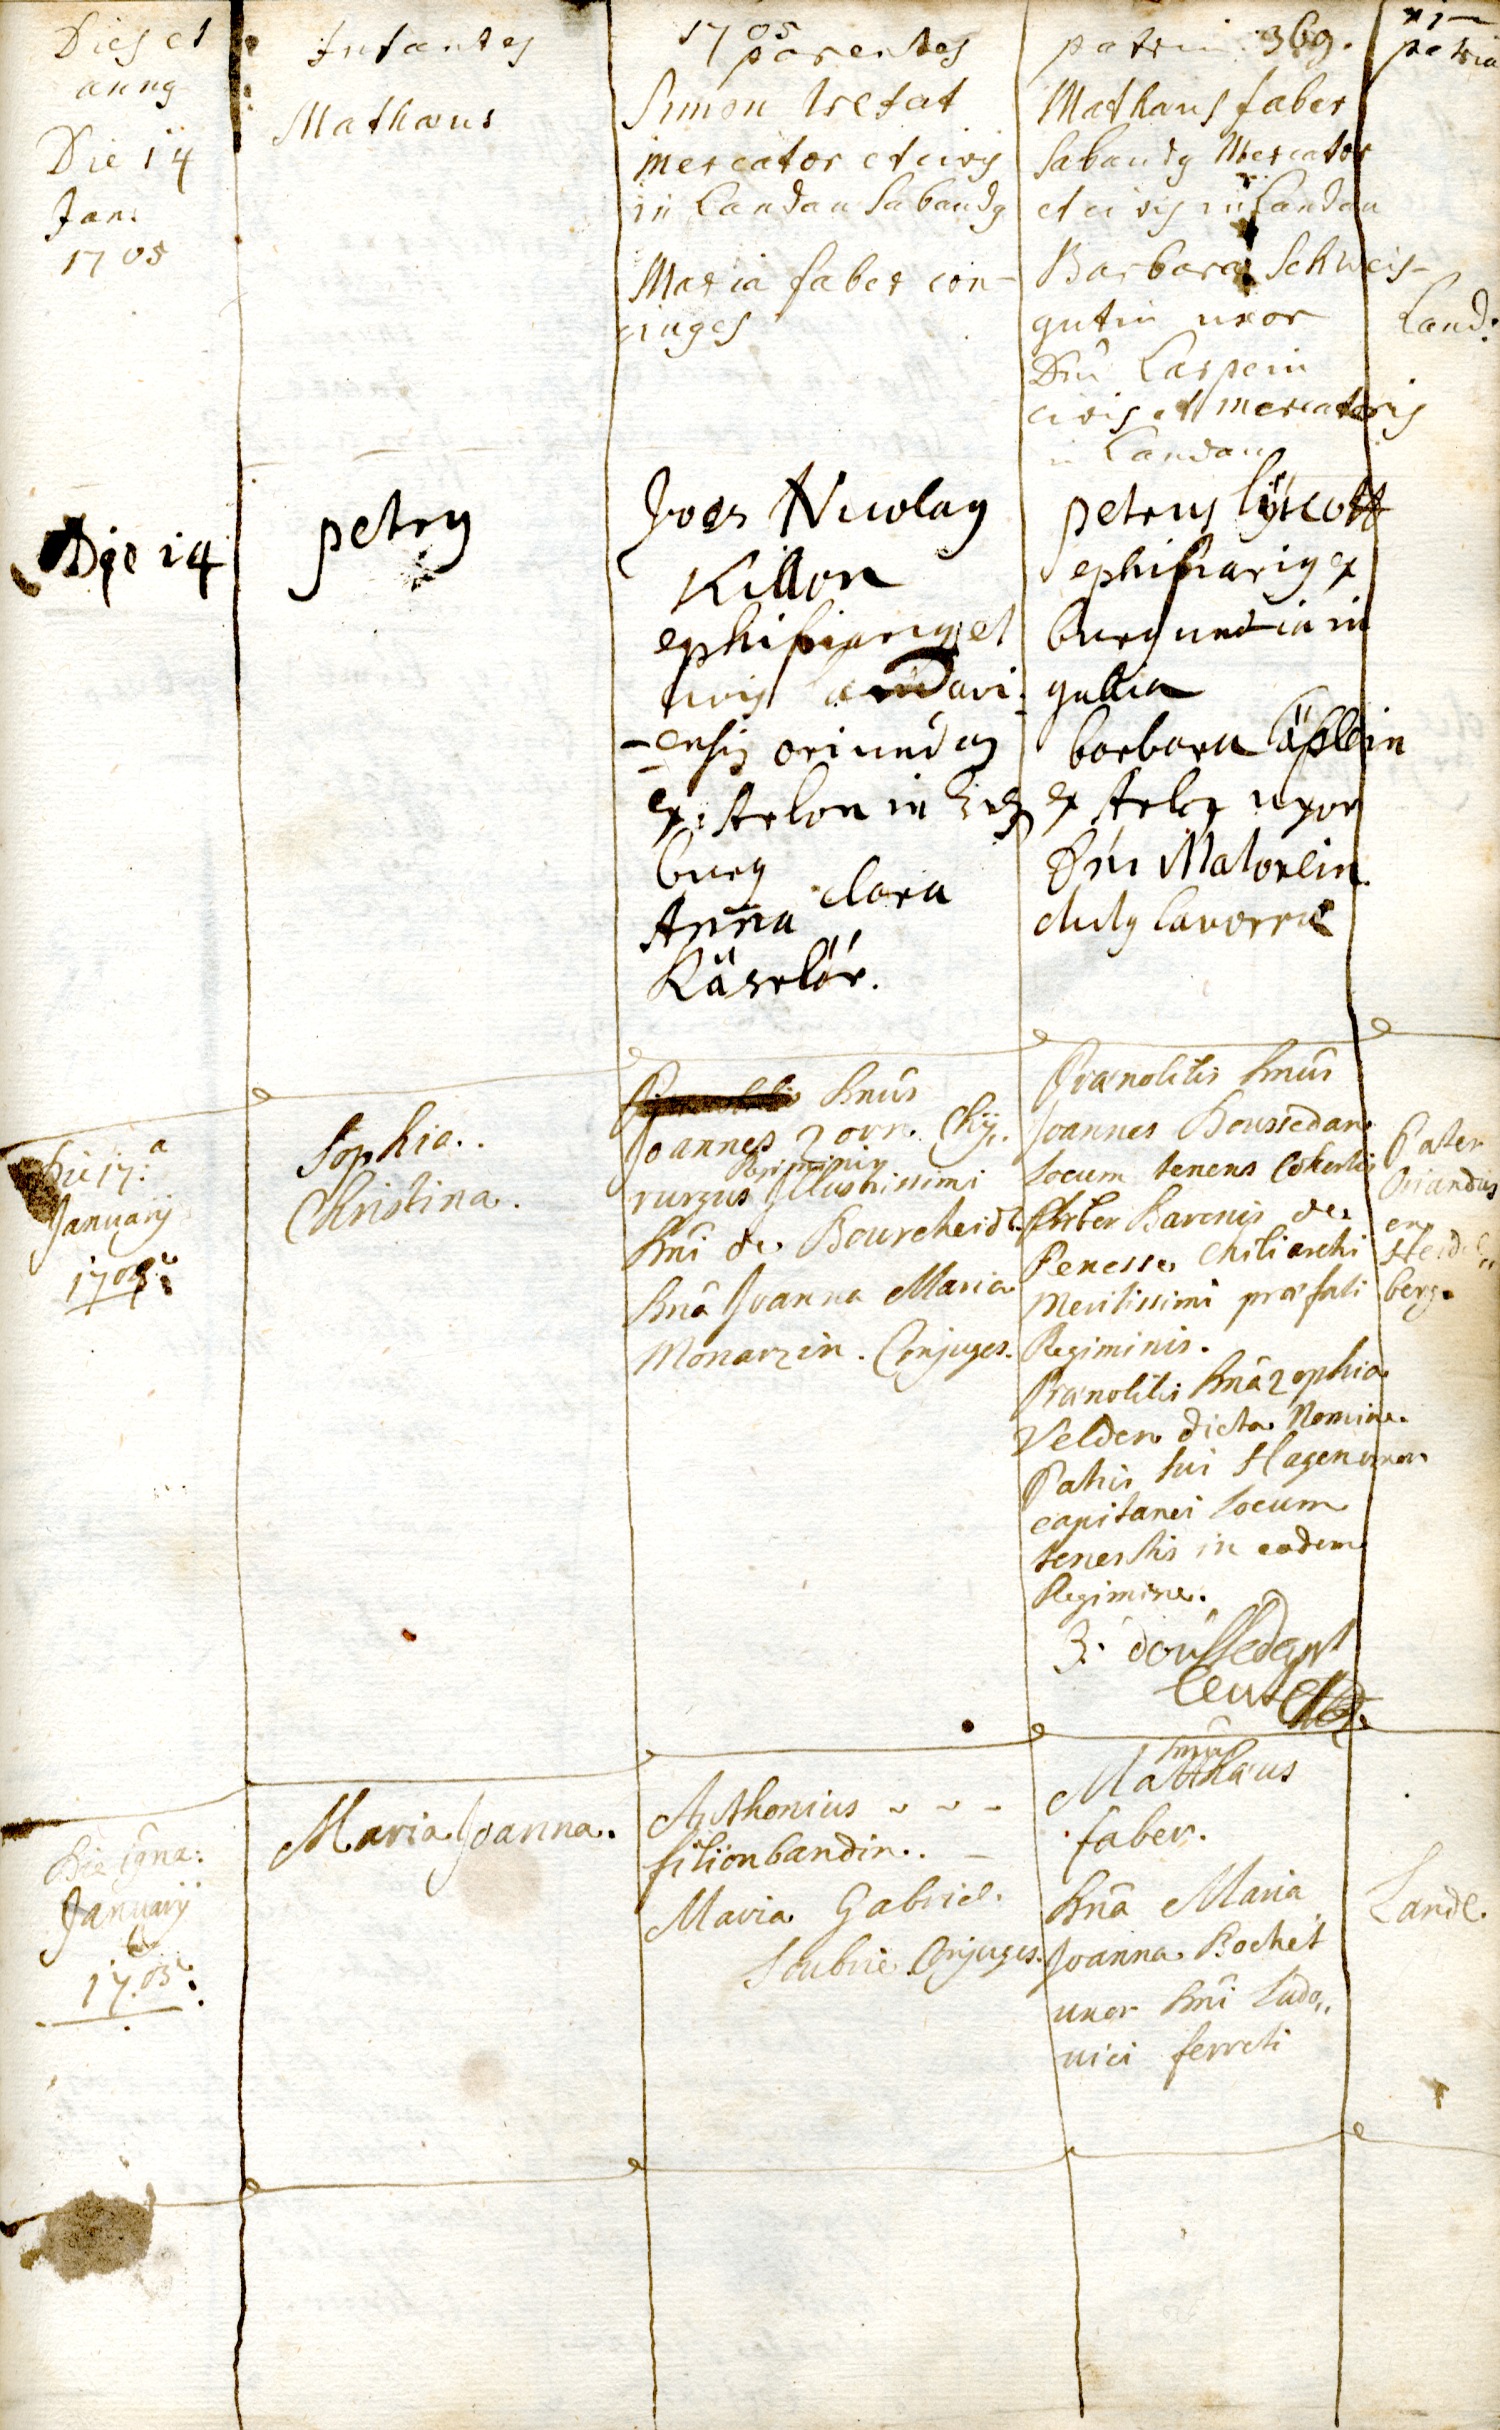 Dies et
annq
Infantes
1705
parentes
patrini 369.
patria
Die 14
Jan:
1705
Mathæus
Simon
mercator et civis
in Landau Sabaudq
Maria faber con-
iuges
Mathæus faber
Sabaudq Mercator
et civis in Landau
Barbara Schweis-
gutin uxor
Dni Caspein
civis et mercatoris
in Landau
Land:
Die 14
petrq
Joes Nicolaq
Killon
ephipiariq et
civis Landavi-
-ensis oriundq
ex Arlon in
burg
Anna clara
Käselör.
petrus
ephipiariq ex
burgundia in
gallia
barbara
ex Arlon uxor
Dni Matorlin
Die 17:a
Januarij
1705:
Sophia..
Christina.
Dnûs
Joannes Zorn Chÿ,,
Regiminis
rurgus Illustrissimi
Dnî de Bourcheidt.
Dnâ Joanna Maria
Monarzin. Conjuges.
Prænobilis Dnûs
Joannes Doussedan
locum tenens Cohortis
Liber Baronis de
Renesse Chiliarchi
Meritissimi præfati
Regiminis.
Prænobilis Dnâ Zophia
Velden dicta Nomine
Patris sui Hagen uxor
capitanei locum
tenentis in eodem
Regimine.
doussedant
Leut
Pater
Oriundus
ex
Heidel,,
berg.
Die 19na:
Januarij
1705:
Maria Joanna.
Anthonius
filionbandin..
Maria Gabriel
Soubrie Conjuges.
Dnus
Matthæus
faber.
Dnâ Maria
Joanna Bochet
uxor Dnî Ludo,,
vici ferreti
Landl.